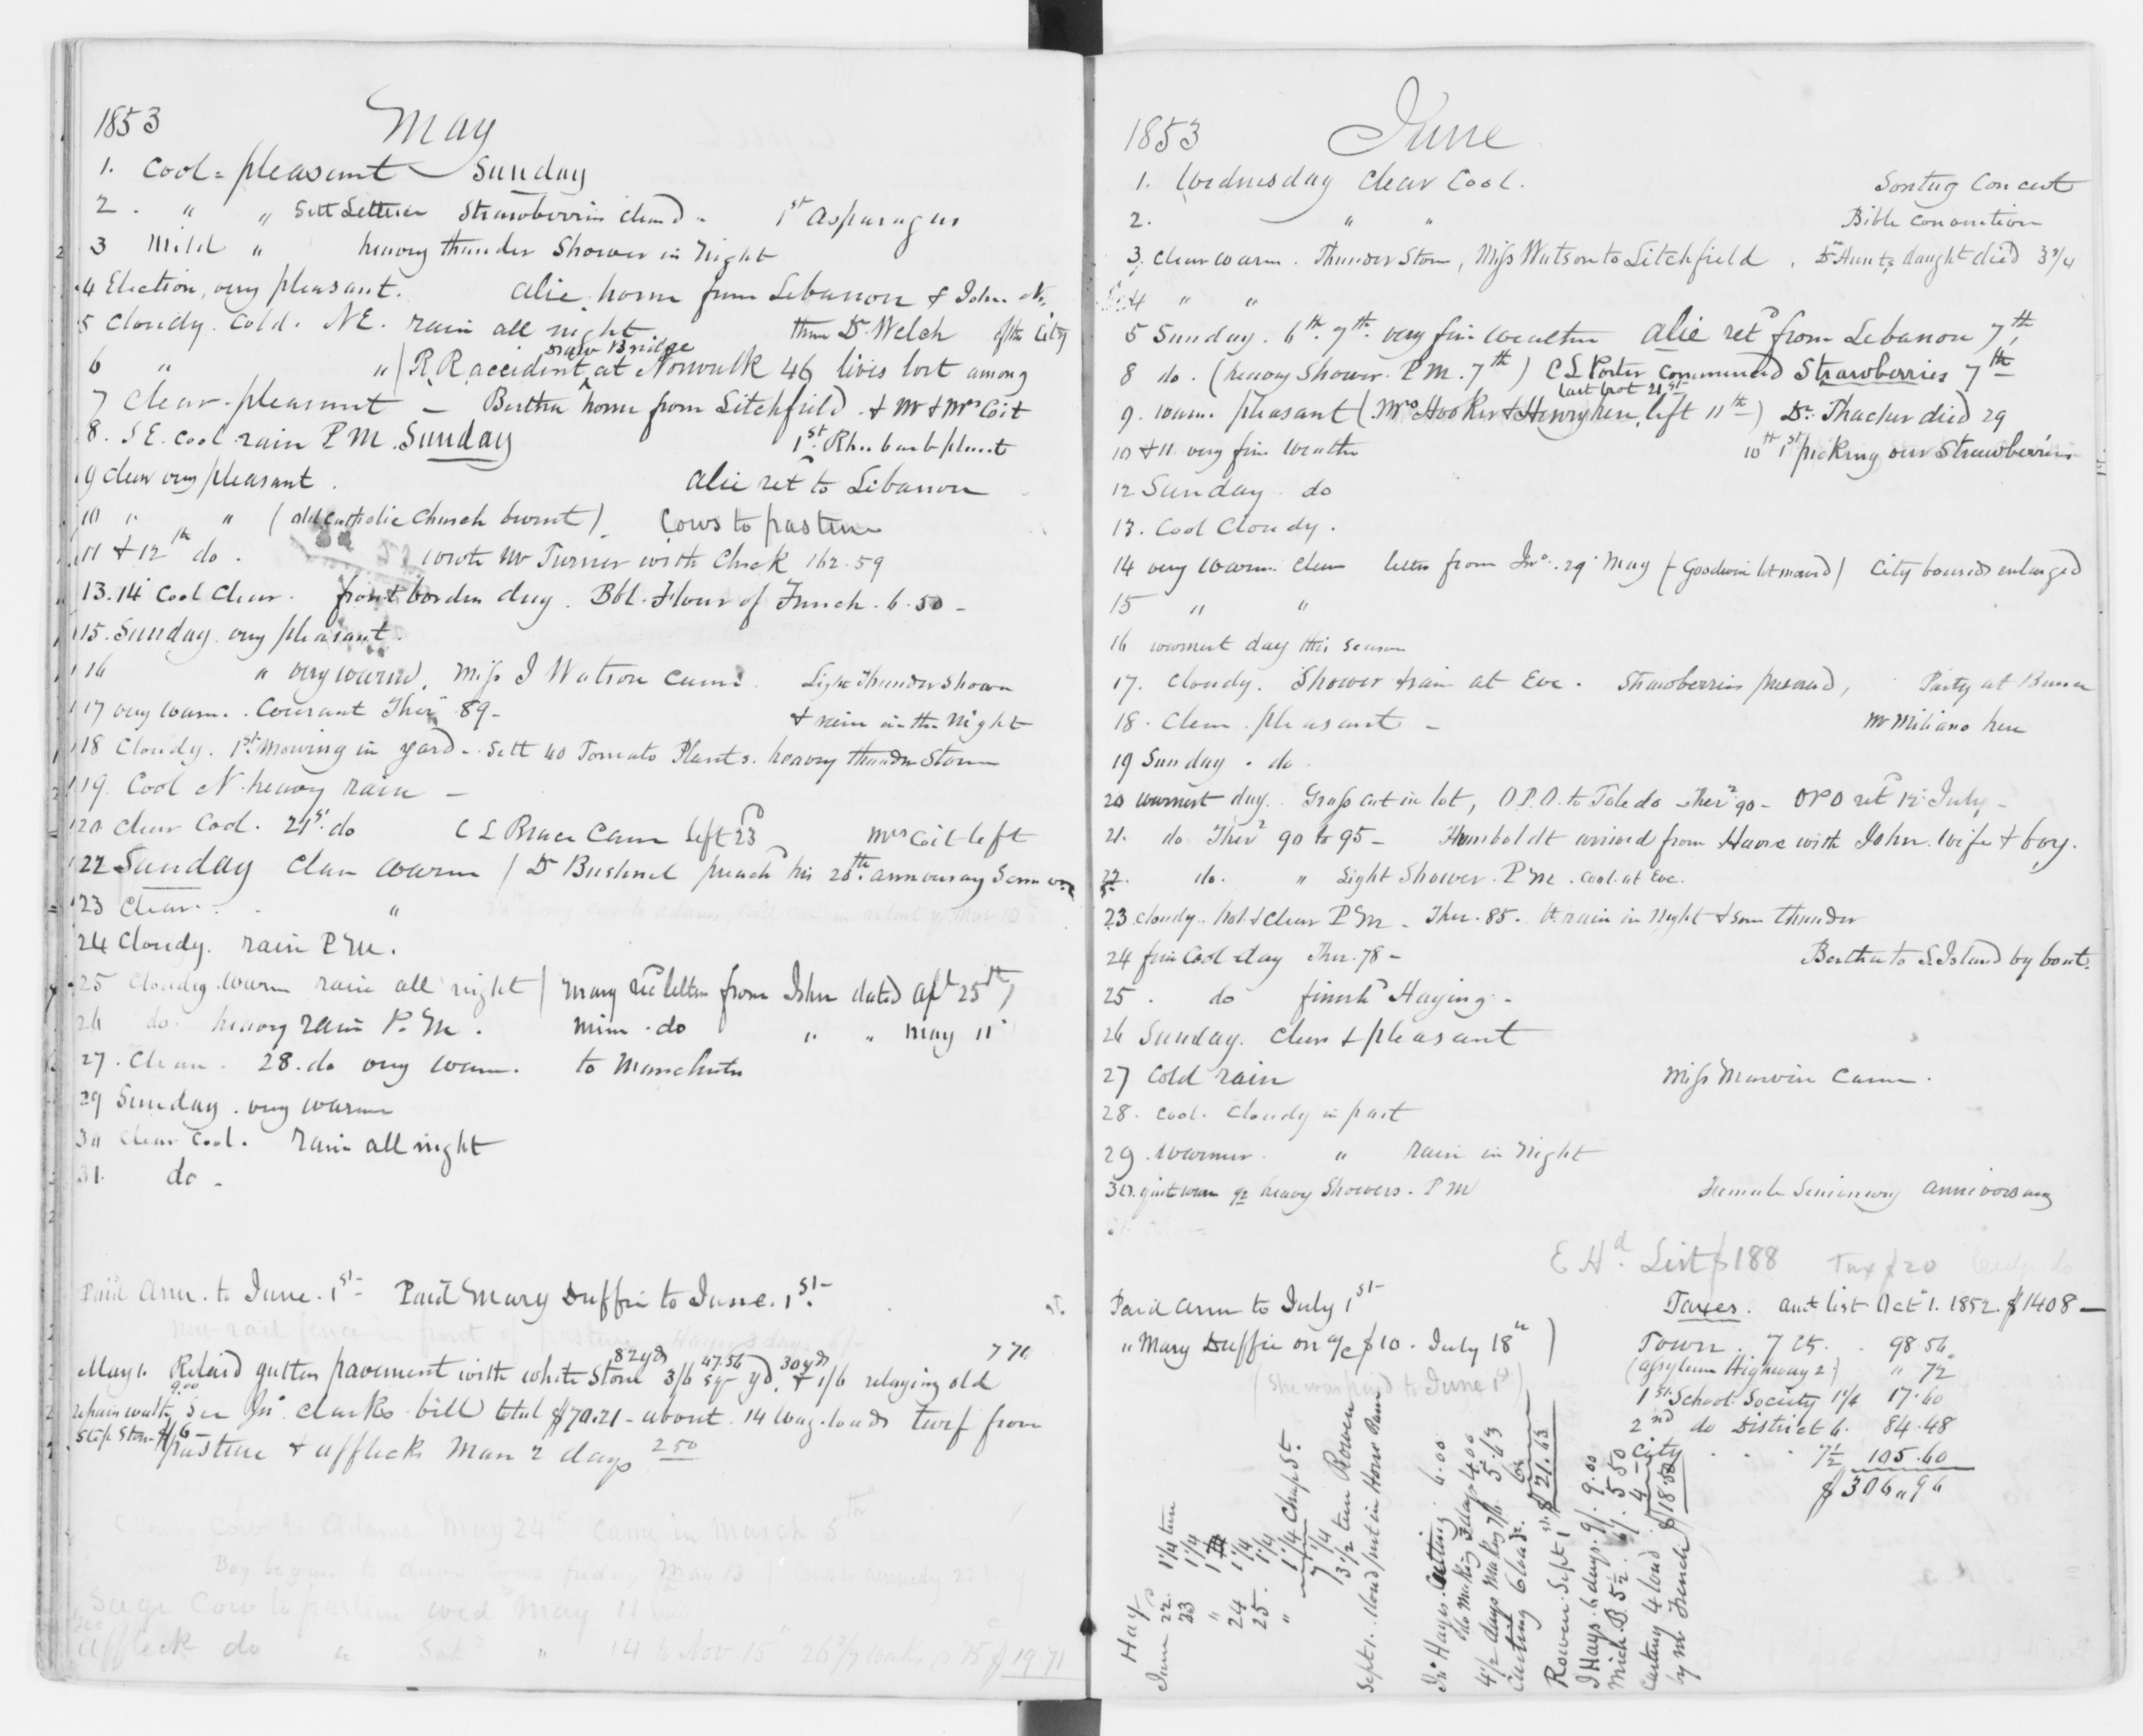 1853 May
1. Cool = pleasant — Sunday
2. " " Sett Lettuce Strawberries clead - 1st Asparagus
3 Mild " heavy thunder Shower in night
4 Election, very pleasant. Alie home from Lebanon & John N.
5 Cloudy. Cold. NE. rain all night them Dr Welch of the City
6 " " / R.R. accident at Draw Bridge Norwalk 46 lives lost among
7 Clear - pleasant — Bertha home from Litchfield & Mr & Mrs Coit
8. S E. cool rain P M. Sunday 1st Rhubarb plant
9 Clear very pleasant. Alie retd to Lebanon
10 " " (old Catholic Church burnt). Cows to pasture
11 & 12th do. wrote Mr Turner with Check 162.59
13. 14 Cool Clear. front borders dug. Bbl. Flour of French. 6.50 -
15. Sunday. very pleasant.
16 " very warm. Miss J Watson came. Light Thunder Shower
17 very warm. Courant Ther 89 - & rain in the night
18 Cloudy. 1st Mowing in yard - Sett 40 Tomato Plants. heavy thunder Storm
19. Cool N. heavy rain —
20 Clear Cool. 21st do C L Brace Came left 23d Mrs Coit left
22 Sunday Clear warm / Dr Bushnel preachd his 20th anniversary Sermon
23 Clear. "
24 Cloudy. rain P M.
25 Cloudy warm rain all night / Mary recd letter from John dated Apl 25th /
26 do heavy rain P. M. Mim. do " " May 11
27. Clear. 28. do very warm. to Manchester
29 Sunday. very warm
30 Clear Cool. rain all night
31. do -
Paid Ann. to June. 1st - Paid Mary Duffie to June. 1st -
New rail fence in front of pasture Hayes 3 days 6/-
May 1. Relaid gutter pavement with white Stone 82 yds 3/6 47.56 sqr yd. 30 yds & 1/6 relaying old 7 70
repair walk 9.00 See Jno Clarks bill total $70.21 - about 14 wag. loads turf from
Step Stone $6 - pasture & Afflecks Man 2 days 2 50
Young Cow to Adams May 24th Came in March 5th
Boy began to drive Cows Friday May 13
Sage Cow to pasture wed May 11
Geo Affleck do " Satd " 14 to Nov 15 26 3/7 weeks @ 75c $19.71
1853 June
1. Wednesday Clear Cool. Sontag Concert
2. " " Bible Convention
3. Clear warm. Thunder Storm, Miss Watson to Litchfield. Dr Hunts daught died 3 3/4
4 " "
5 Sunday. 6th. 7th. very fine weather Alie retd from Lebanon 7th,
8 do. (heavy Shower. P M. 7th) C L Porter commenced Strawberries 7th
9. warm. pleasant (Mrs Hooker & Henry here, left 11th) last frot 21st Dr. Thacher died 29
10 & 11 very fine weather 10th 1st picking our Strawberries
12 Sunday do
13. Cool Cloudy.
14 very warm Clear letter from Jno. 29 May (Goodwin lot mowd) City bounds enlarged
15 " "
16 warmest day this Season
17. Cloudy. Shower & rain at Eve. Strawberries preserved, Party at
18. Clear. pleasant - Mr Miliano here
19 Sunday. do.
20 warmest day. Grass cut in lot, O.P.O. to Toledo Ther 90 - OPO retd 12 July -
21. do Ther 90 to 95 - Humboldt arrived from Havre with John. Wife & boy.
22. do. " Light Shower. P M. Cool at Eve.
23 Cloudy. hot & Clear P M. Ther. 85. lt rain in Night & some thunder
24 fine Cool day Ther. 78 - Bertha to S. Island by boat.
25. do finishd Haying -
26 Sunday. Clear & pleasant
27 Cold rain Miss Marvin Came.
28. Cool. Cloudy in part
29. warmer. " rain in Night
30. quit warm 92 heavy Showers. P M Female Seminary anniversary
E Hd List $188 Tax $20
Paid Ann to July 1st -
" Mary Duffie on a/c $10. July 18th )
(She was paid to June 1st)
Taxes. amt list Oct 1. 1852. $1408 —
Town. 7 cts. 98.56
(Asylum Highway 2) " 72
1st School Society 1 1/4 17.60
2nd do District 6. 84.48
City 7 1/2 105.60
$306.96
Hay
June 22. 1 1/4 ton
23 1 1/4
" 1
24 1 1/4
25. 1 1/4
" 1 1/4 Chap St.
7 1/4
3 1/2 tun Rowen
Sept 1. 1 load put in Horse Barn
Jno Hayes. Cutting 6.00
do making 3 days 4.00
4 1/2 days Making 7/6. 5.63
Carting 6 loads. 6
$21.63
Rowen. Sept 1st.
J Hays. 6 days. 9/. 9.00
Mich. B. 5 1/2. 6/. 5 50
Carting 4 load 4 -
by Mr French $18.50